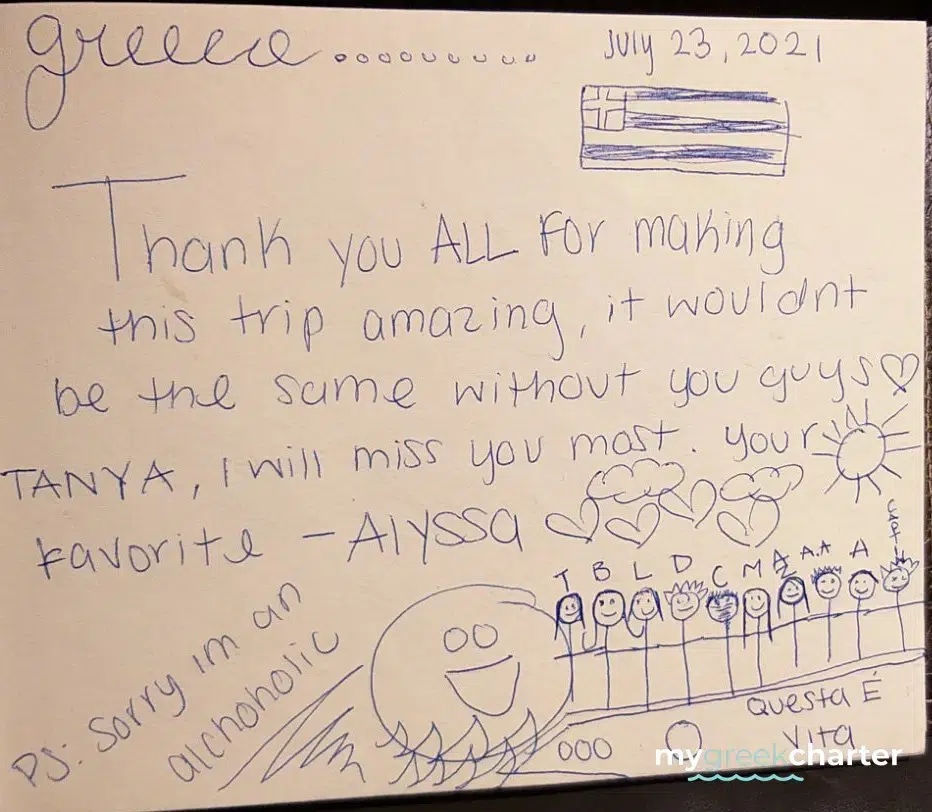 greece.........
July 23, 2021
Thank you ALL For making
this trip amazing, it wouldnt
be the same without you guys
TANYA, I will miss you most. your
favorite - Alyssa
T B L D C M A A.A A
PS: Sorry im an
alchoholic
Questa É
Vita
mygreekcharter